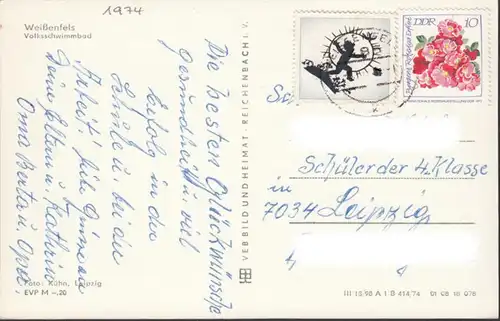 1974
Weißenfels
Volksschwimmbad
Die besten Glückwünsche
Gesundheit u. viel
Erfolg in der
Schule u. bei der
Arbeit! für
Deine Eltern u. Kathrin
Oma Berta u. Opa.
Foto: Kühn, Leipzig
EVP M –,20
VEB BILD UND HEIMAT · REICHENBACH i. V.
DDR 10
Schüler der 4. Klasse
in
7034 Leipzig
III 15/98 A 1 B 414/74 01 08 18 078